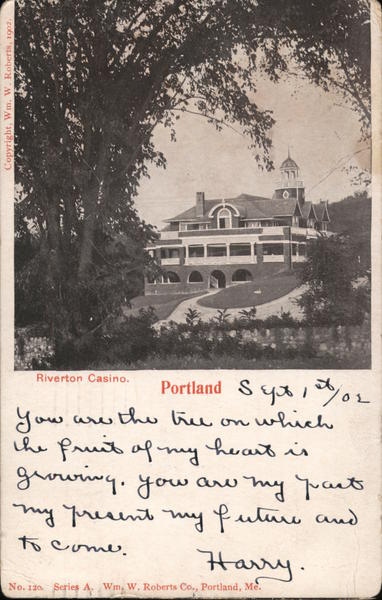 Copyright, Wm. W. Roberts, 1902.
Riverton Casino.
Portland Sept 1st/02
You are the tree on which
the fruit of my heart is
growing. You are my past
my present my future and
to come.
Harry.
No. 120. Series A. Wm. W. Roberts Co., Portland, Me.